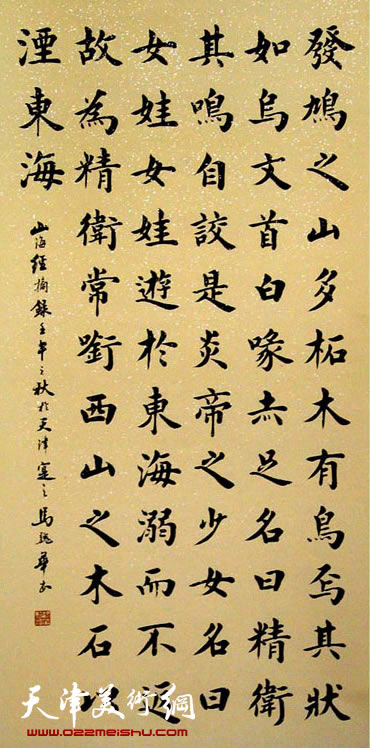 發鳩之山多柘木有鳥焉其狀
如烏文首白喙赤足名曰精衛
其鳴自詨是炎帝之少女名曰
女娃女娃遊於東海溺而不返
故為精衛常銜西山之木石以
湮東海
山海經摘錄壬午之秋於天津 馬 華書
天津美術網
www.022meishu.com